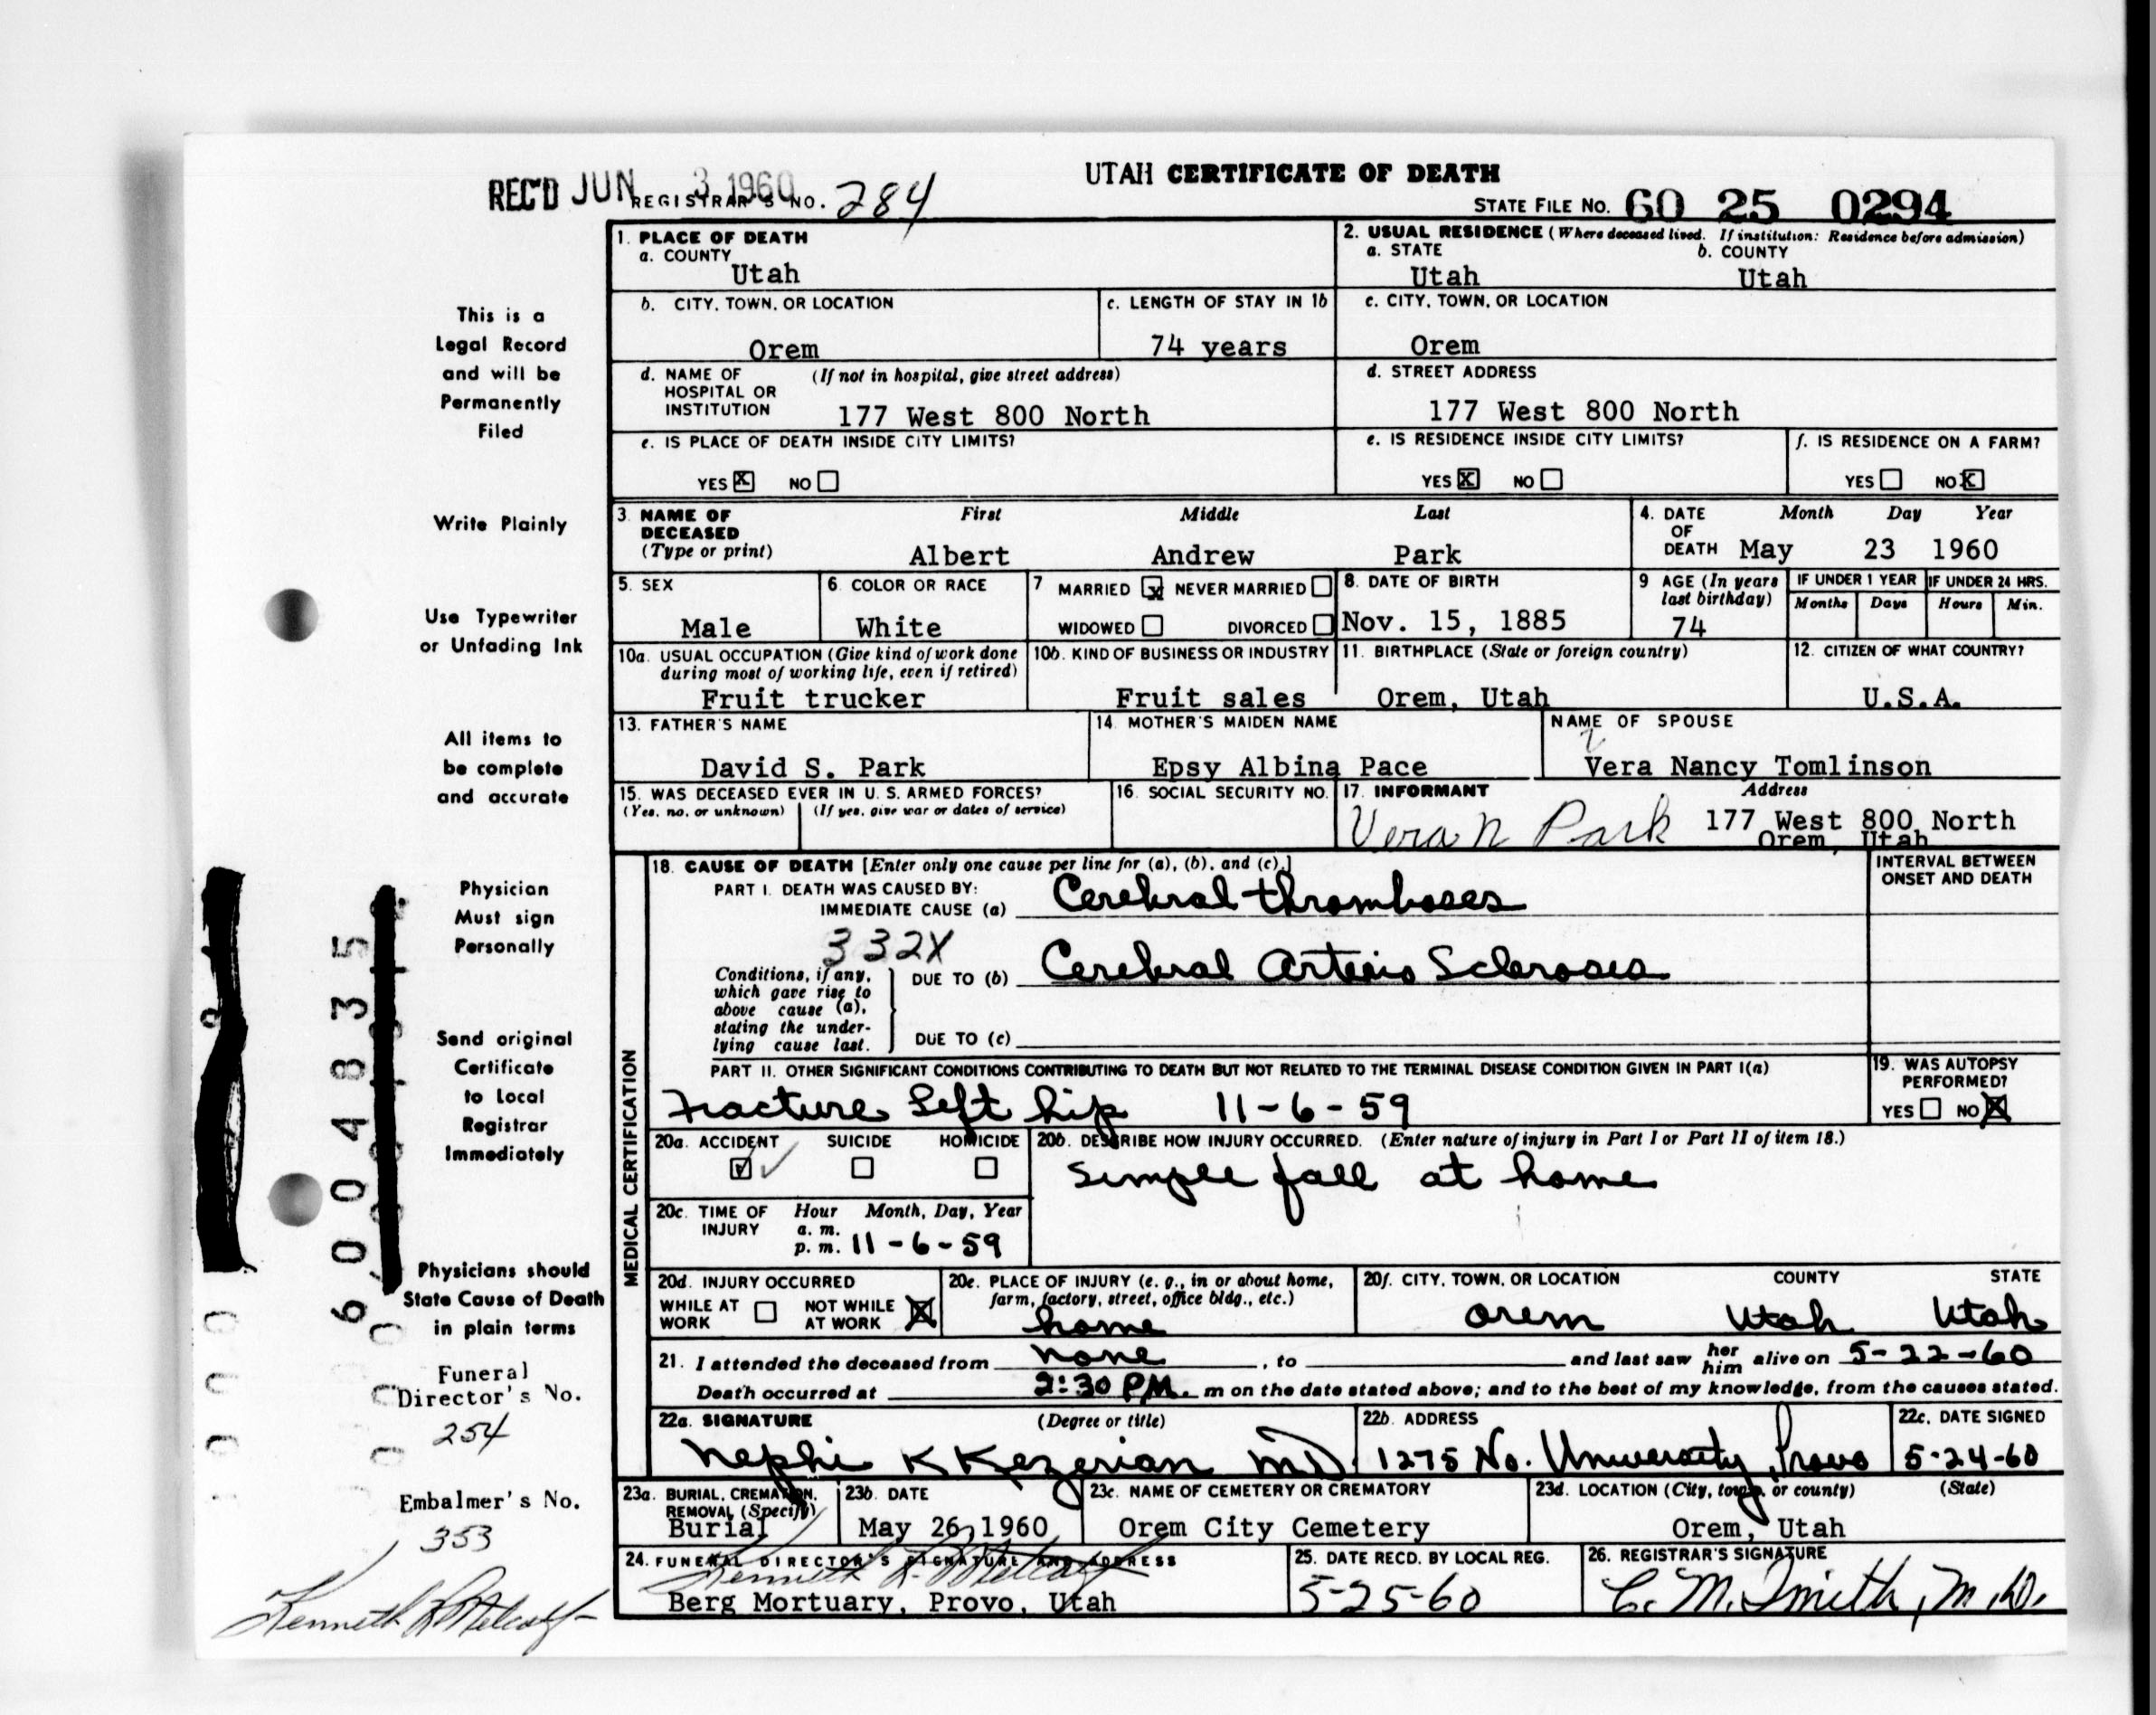 UTAH CERTIFICATE OF DEATH
REC'D JUN 3 1960 REGISTRAR'S NO. 284
STATE FILE NO. 60 25 0294
1. PLACE OF DEATH
a. COUNTY
Utah
2. USUAL RESIDENCE (Where deceased lived. If institution: Residence before admission)
a. STATE b. COUNTY
Utah Utah
b. CITY, TOWN, OR LOCATION
Orem
c. LENGTH OF STAY IN 1b
74 years
c. CITY, TOWN, OR LOCATION
Orem
d. NAME OF (If not in hospital, give street address)
HOSPITAL OR
INSTITUTION 177 West 800 North
d. STREET ADDRESS
177 West 800 North
e. IS PLACE OF DEATH INSIDE CITY LIMITS?
YES X NO
e. IS RESIDENCE INSIDE CITY LIMITS?
YES X NO
f. IS RESIDENCE ON A FARM?
YES NO X
3. NAME OF First Middle Last
DECEASED
(Type or print) Albert Andrew Park
4. DATE Month Day Year
OF
DEATH May 23 1960
5. SEX
Male
6. COLOR OR RACE
White
7 MARRIED x NEVER MARRIED
WIDOWED DIVORCED
8. DATE OF BIRTH
Nov. 15, 1885
9 AGE (In years
last birthday)
74
IF UNDER 1 YEAR
Months Days
IF UNDER 24 HRS.
Hours Min.
10a. USUAL OCCUPATION (Give kind of work done
during most of working life, even if retired)
Fruit trucker
10b. KIND OF BUSINESS OR INDUSTRY
Fruit sales
11. BIRTHPLACE (State or foreign country)
Orem, Utah
12. CITIZEN OF WHAT COUNTRY?
U.S.A.
13. FATHER'S NAME
David S. Park
14. MOTHER'S MAIDEN NAME
Epsy Albina Pace
NAME OF SPOUSE
Vera Nancy Tomlinson
15. WAS DECEASED EVER IN U. S. ARMED FORCES?
(Yes, no, or unknown) (If yes, give war or dates of service)
16. SOCIAL SECURITY NO.
17. INFORMANT Address
Vera N Park 177 West 800 North
Orem, Utah
MEDICAL CERTIFICATION
18. CAUSE OF DEATH [Enter only one cause per line for (a), (b), and (c).]
INTERVAL BETWEEN
ONSET AND DEATH
PART I. DEATH WAS CAUSED BY:
IMMEDIATE CAUSE (a) Cerebral thromboses
332X
Conditions, if any,
which gave rise to
above cause (a),
stating the under-
lying cause last.
DUE TO (b) Cerebral Arterio Scleroses
DUE TO (c)
PART II. OTHER SIGNIFICANT CONDITIONS CONTRIBUTING TO DEATH BUT NOT RELATED TO THE TERMINAL DISEASE CONDITION GIVEN IN PART I(a)
Fracture Left hip 11-6-59
19. WAS AUTOPSY
PERFORMED?
YES NO X
20a. ACCIDENT SUICIDE HOMICIDE
20b. DESCRIBE HOW INJURY OCCURRED. (Enter nature of injury in Part I or Part II of item 18.)
Simple fall at home
20c. TIME OF Hour Month, Day, Year
INJURY a. m.
p. m. 11-6-59
20d. INJURY OCCURRED
WHILE AT NOT WHILE X
WORK AT WORK
20e. PLACE OF INJURY (e. g., in or about home,
farm, factory, street, office bldg., etc.)
home
20f. CITY, TOWN, OR LOCATION COUNTY STATE
Orem Utah Utah
21. I attended the deceased from none , to and last saw her him alive on 5-22-60
Death occurred at 2:30 PM. m on the date stated above; and to the best of my knowledge, from the causes stated.
22a. SIGNATURE (Degree or title)
Nephi K Kezerian MD.
22b. ADDRESS
1275 No. University, Provo
22c. DATE SIGNED
5-24-60
23a. BURIAL, CREMATION,
REMOVAL (Specify)
Burial
23b. DATE
May 26, 1960
23c. NAME OF CEMETERY OR CREMATORY
Orem City Cemetery
23d. LOCATION (City, town, or county) (State)
Orem, Utah
24. FUNERAL DIRECTOR'S SIGNATURE AND ADDRESS
Kenneth L. Metcalf
Berg Mortuary, Provo, Utah
25. DATE RECD. BY LOCAL REG.
5-25-60
26. REGISTRAR'S SIGNATURE
C. M. Smith, M.D.
This is a
Legal Record
and will be
Permanently
Filed
Write Plainly
Use Typewriter
or Unfading Ink
All items to
be complete
and accurate
Physician
Must sign
Personally
Send original
Certificate
to Local
Registrar
Immediately
Physicians should
State Cause of Death
in plain terms
Funeral
Director's No.
254
Embalmer's No.
353
Kenneth L Metcalf
6004835